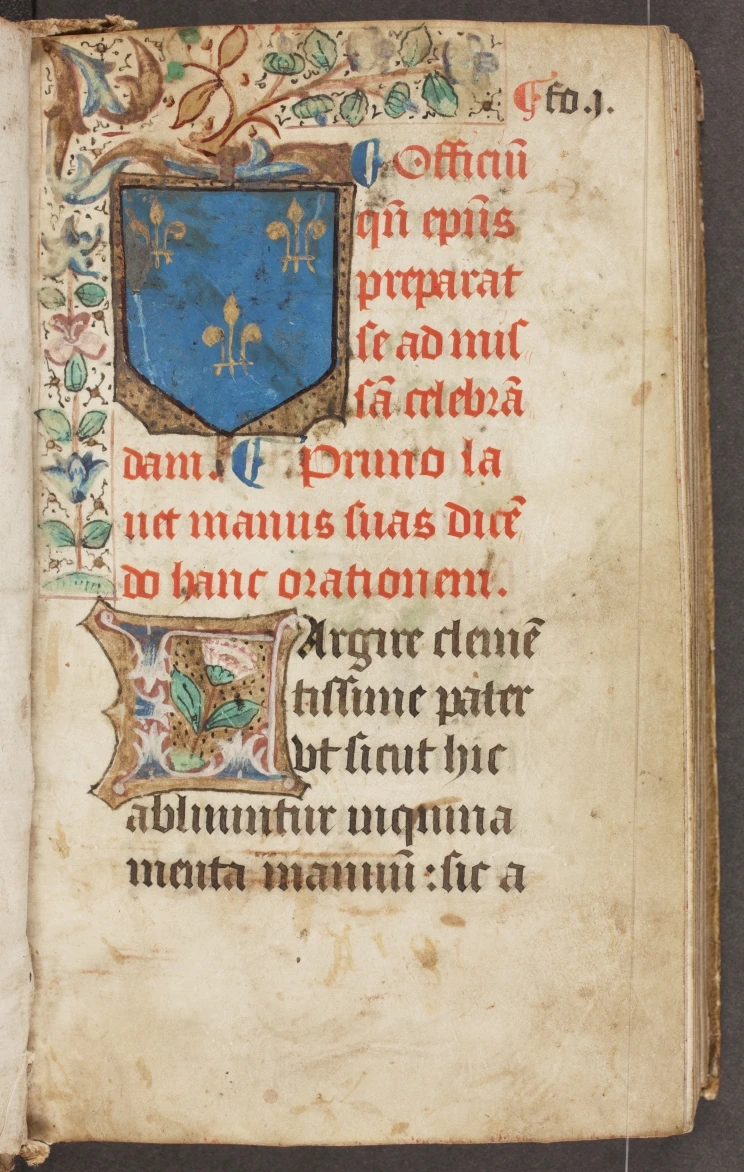 ¶ fo .j.
¶ Officiū
qn̄ ep̄us
preparat
se ad mis
sā celebrā
dam. ¶ Primo la
uet manus suas dicē
do hanc orationem.
LArgire clemē
tissime pater
vt sicut hic
abluuntur inquina
menta manuū : sic a